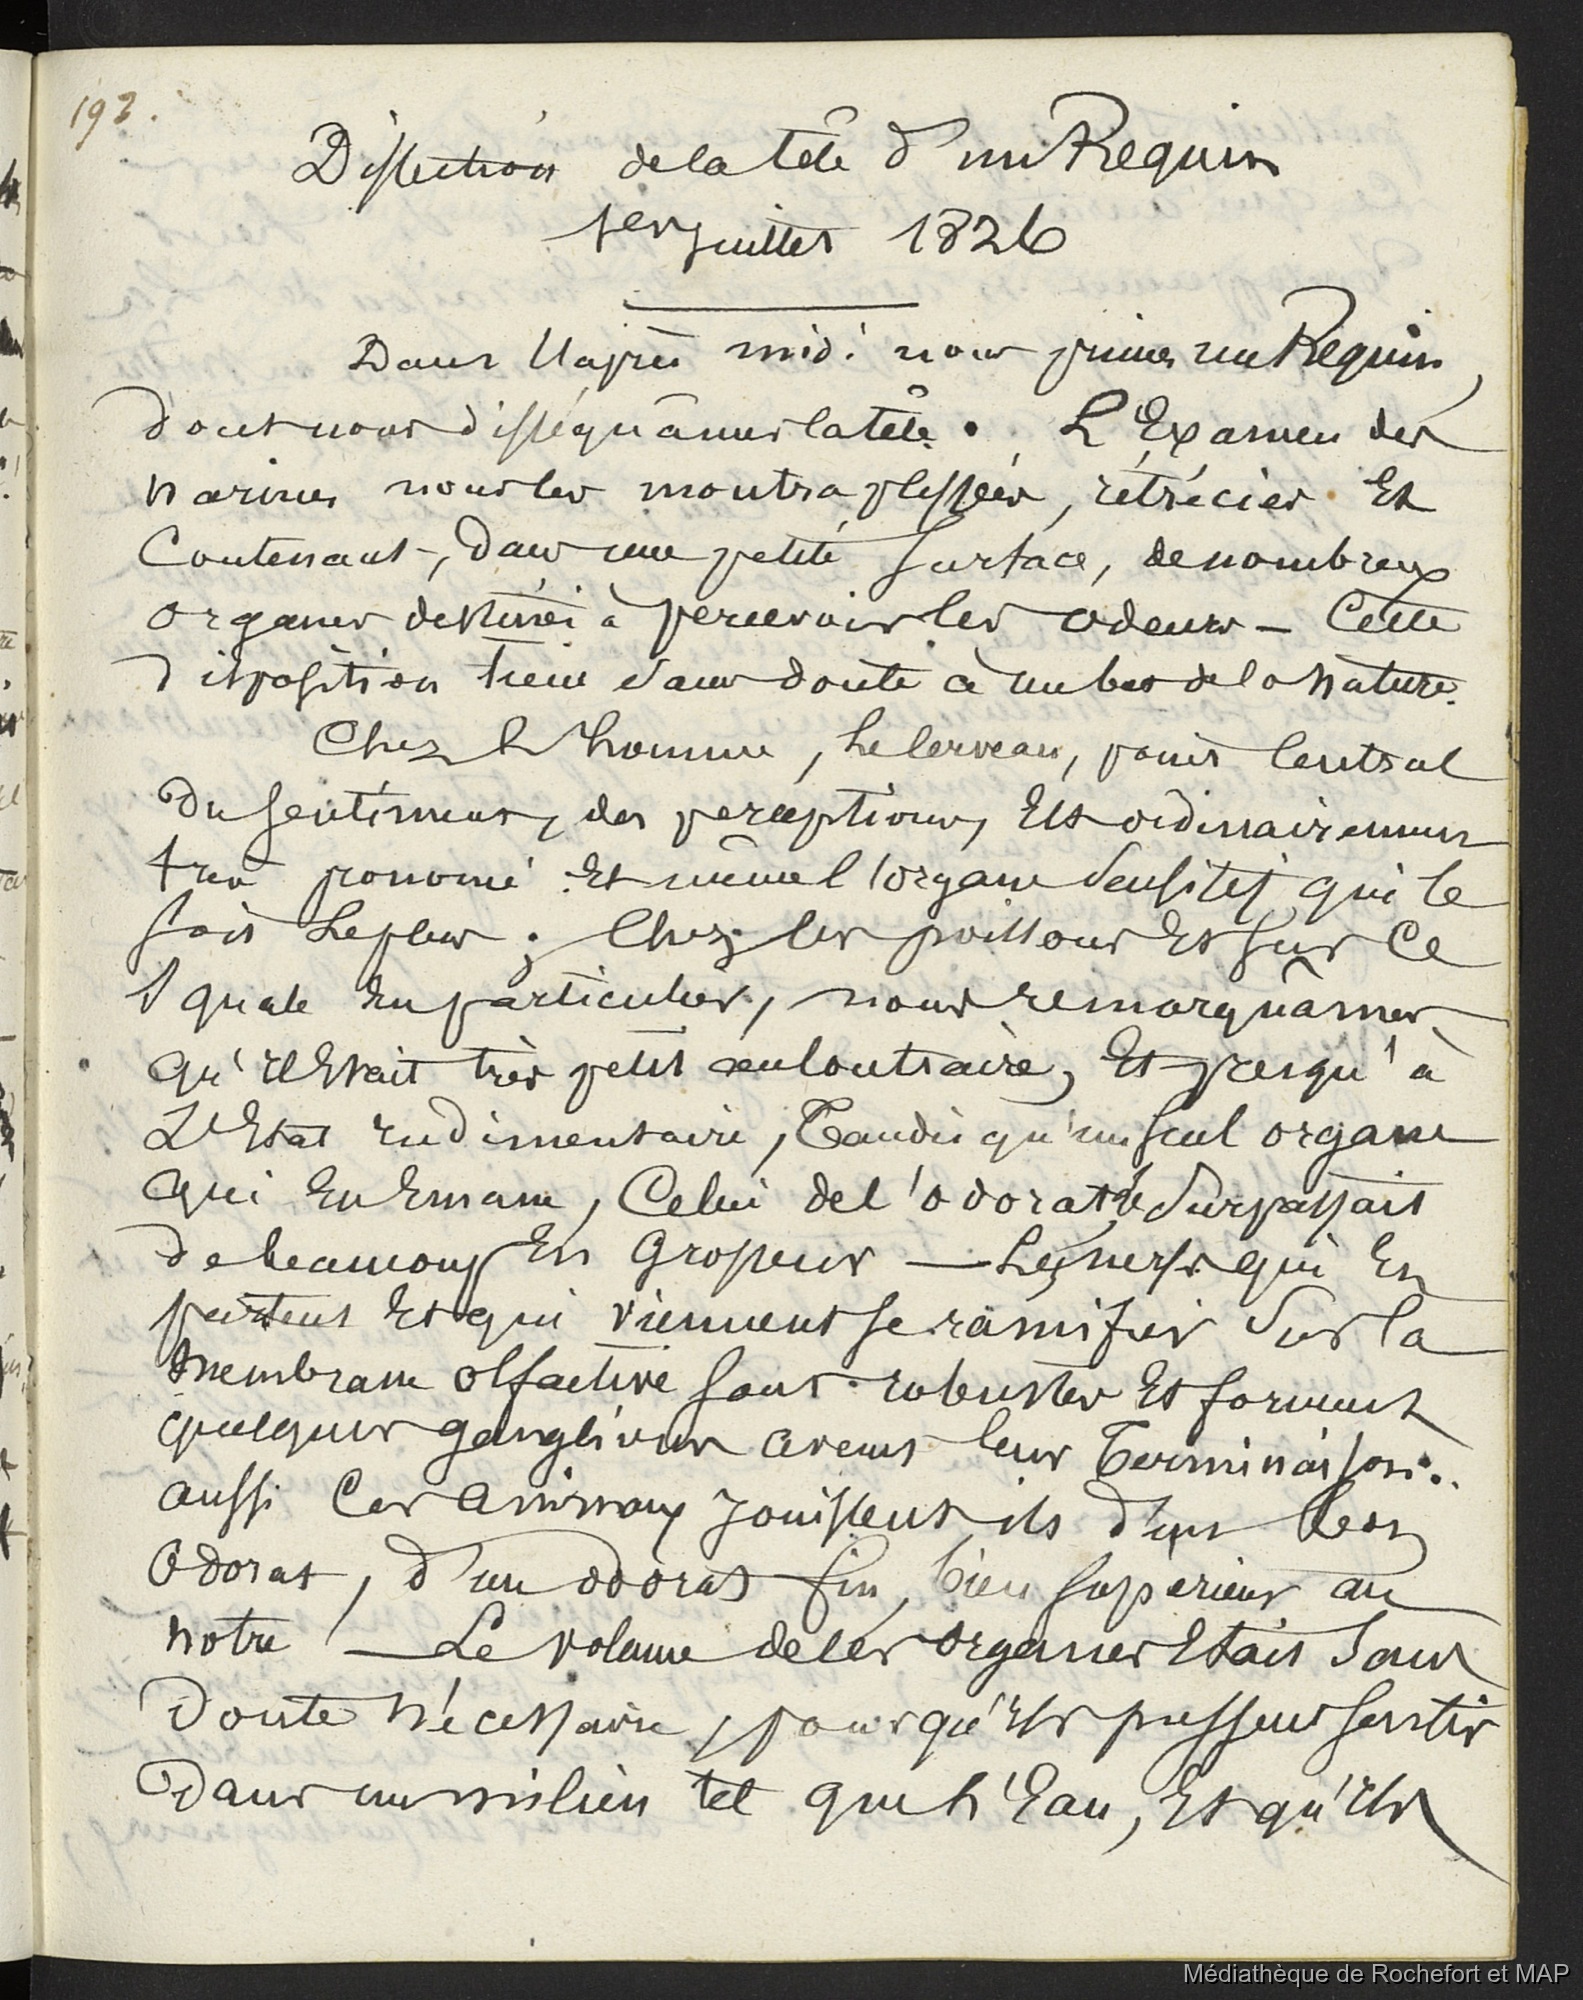 193.
Dissection de la tête d'un Requin
1er juillet 1826
Dans l'après midi nous prîmes un Requin,
dont nous disséquâmes la tête. L'Examen des
narines nous les montra plissées, rétrécies Et
Contenant, dans une petite surface, de nombreux
organes destinés à percevoir les odeurs – Cette
disposition tient sans doute à un but de la Nature.
Chez l'homme, le Cerveau, point Central
du sentiment, des perceptions, Est ordinairement
très prononcé Et même l'organe sensitif qui le
soit le plus ; Chez les poissons Et sur Ce
squale En particulier, nous remarquâmes
qu'il Etait très petit au Contraire, Et presqu'à
L'Etat rudimentaire, Tandis qu'un seul organe
qui En Emane, Celui de l'odorat le surpassait
de beaucoup En Grosseur — Les nerfs qui En
partent Et qui viennent se ramifier sur la
membrane olfactive sont robustes Et forment
quelques ganglions avant leur Terminaison.
aussi Ces animaux jouissent ils d'un bon
odorat, d'un odorat fin, bien supérieur au
notre — Le volume de ces organes Etait sans
Doute Nécessaire, pour qu'ils pussent sentir
Dans un milieu tel que l'Eau, Et qu'ils
Médiathèque de Rochefort et MAP